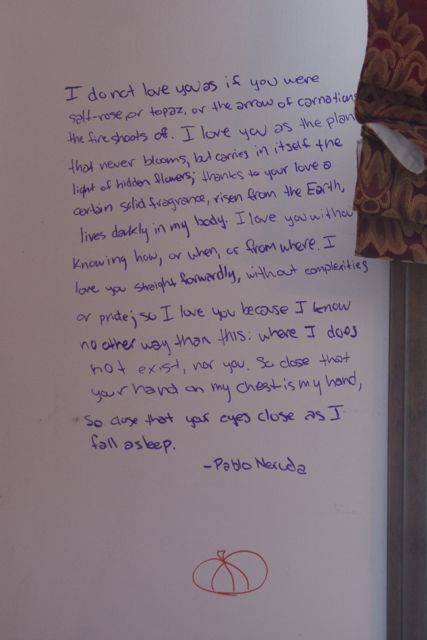 I do not love you as if you were
salt-rose, or topaz, or the arrow of carnations
the fire shoots off. I love you as the plan
that never blooms, but carries in itself the
light of hidden flowers; thanks to your love a
certain solid fragrance, risen from the Earth,
lives darkly in my body. I love you withou
knowing how, or when, or from where. I
love you straight forwardly, without complexities
or pride; so I love you because I know
no other way than this: where I does
not exist, nor you. So close that
your hand on my chest is my hand,
so close that your eyes close as I
fall asleep.
-Pablo Neruda